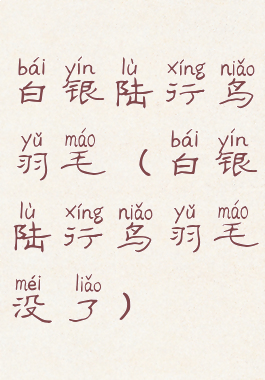 bái yín lù xíng niǎo
白银陆行鸟
yǔ máo bái yín
羽毛（白银
lù xíng niǎo yǔ máo
陆行鸟羽毛
méi liǎo
没了）